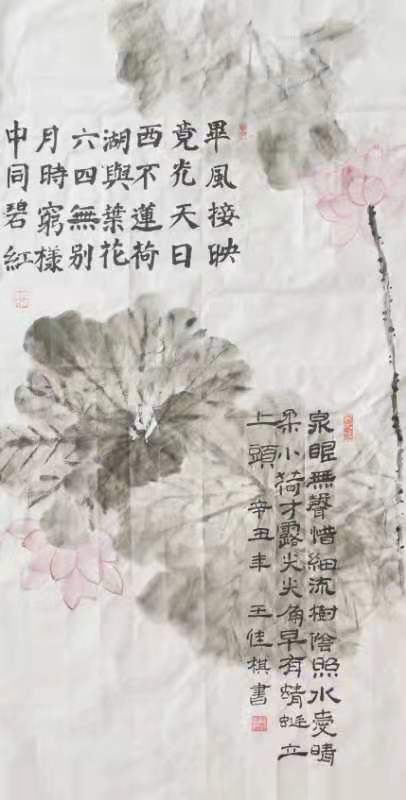 畢竟西湖六月中
風光不與四時同
接天蓮葉無窮碧
映日荷花別樣紅
泉眼無聲惜細流樹陰照水愛晴
柔小荷才露尖尖角早有蜻蜓立
上頭 辛丑年 王佳棋書